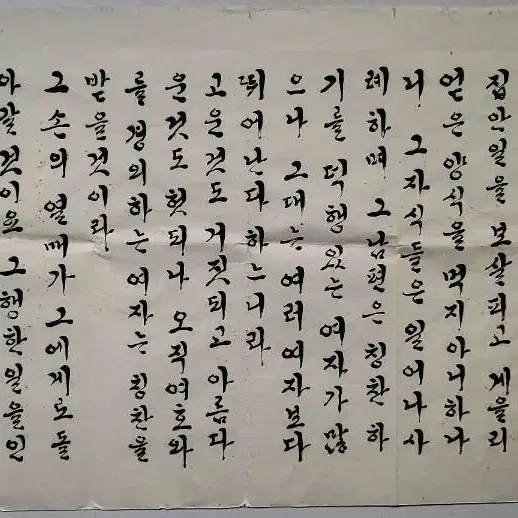 집안일을 보살피고 게을리
얻은 양식을 먹지아니하나
니 그자식들은 일어나사
례하며 그남편은 칭찬하
기를 덕행있는 여자가 많
으나 그대는 여러여자보다
뛰어난다 하느니라
고운것도 거짓되고 아름다
운것도 헛되나 오직여호와
를 경외하는 여자는 칭찬을
받을것이라
그 손의 열매가 그에게로 돌
아갈것이요 그행한일을인